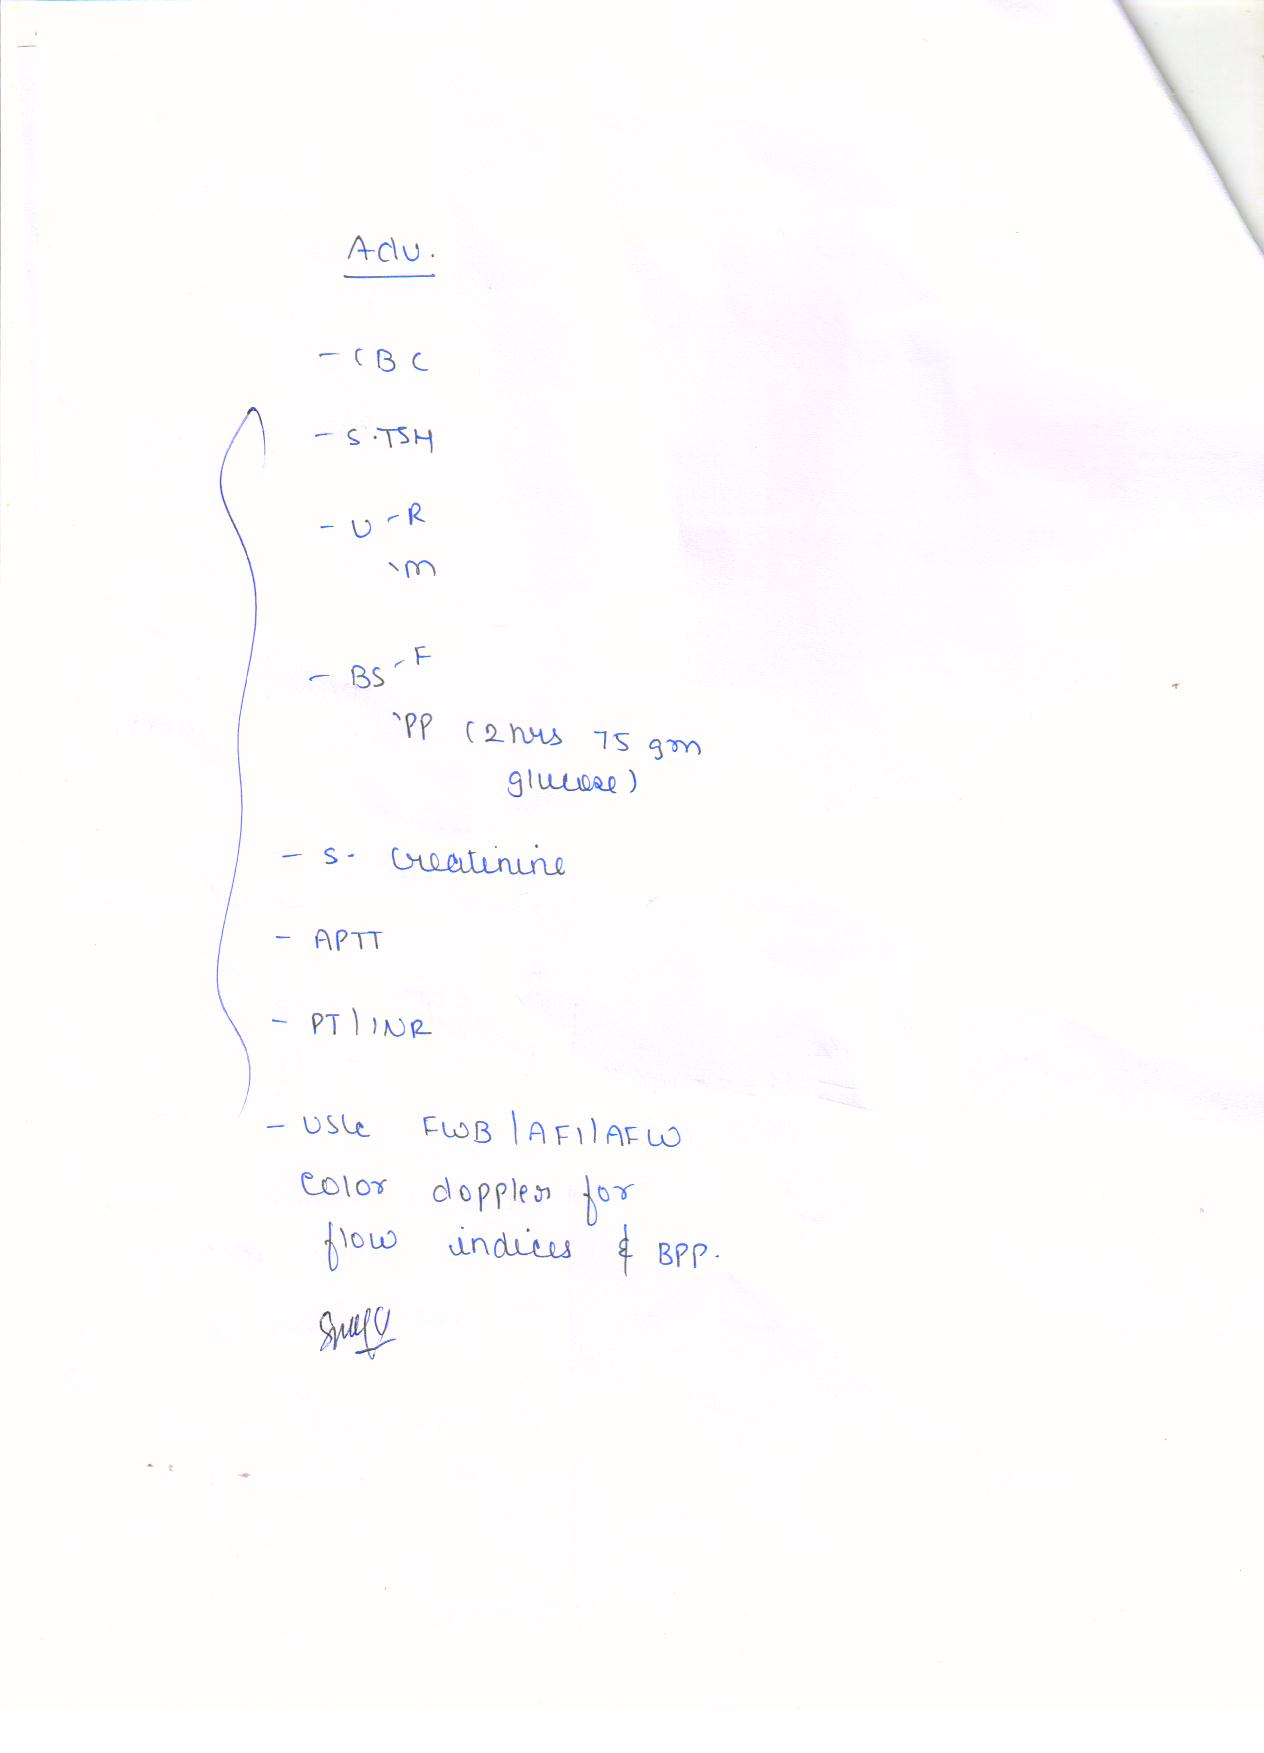 Adv.
- CBC
- S.TSH
- U - R
- M
- BS - F
- PP (2 hrs 75 gm
glucose)
- S. Creatinine
- APTT
- PT|INR
- USG FWB |AFI|AFW
color doppler for
flow indices & BPP.